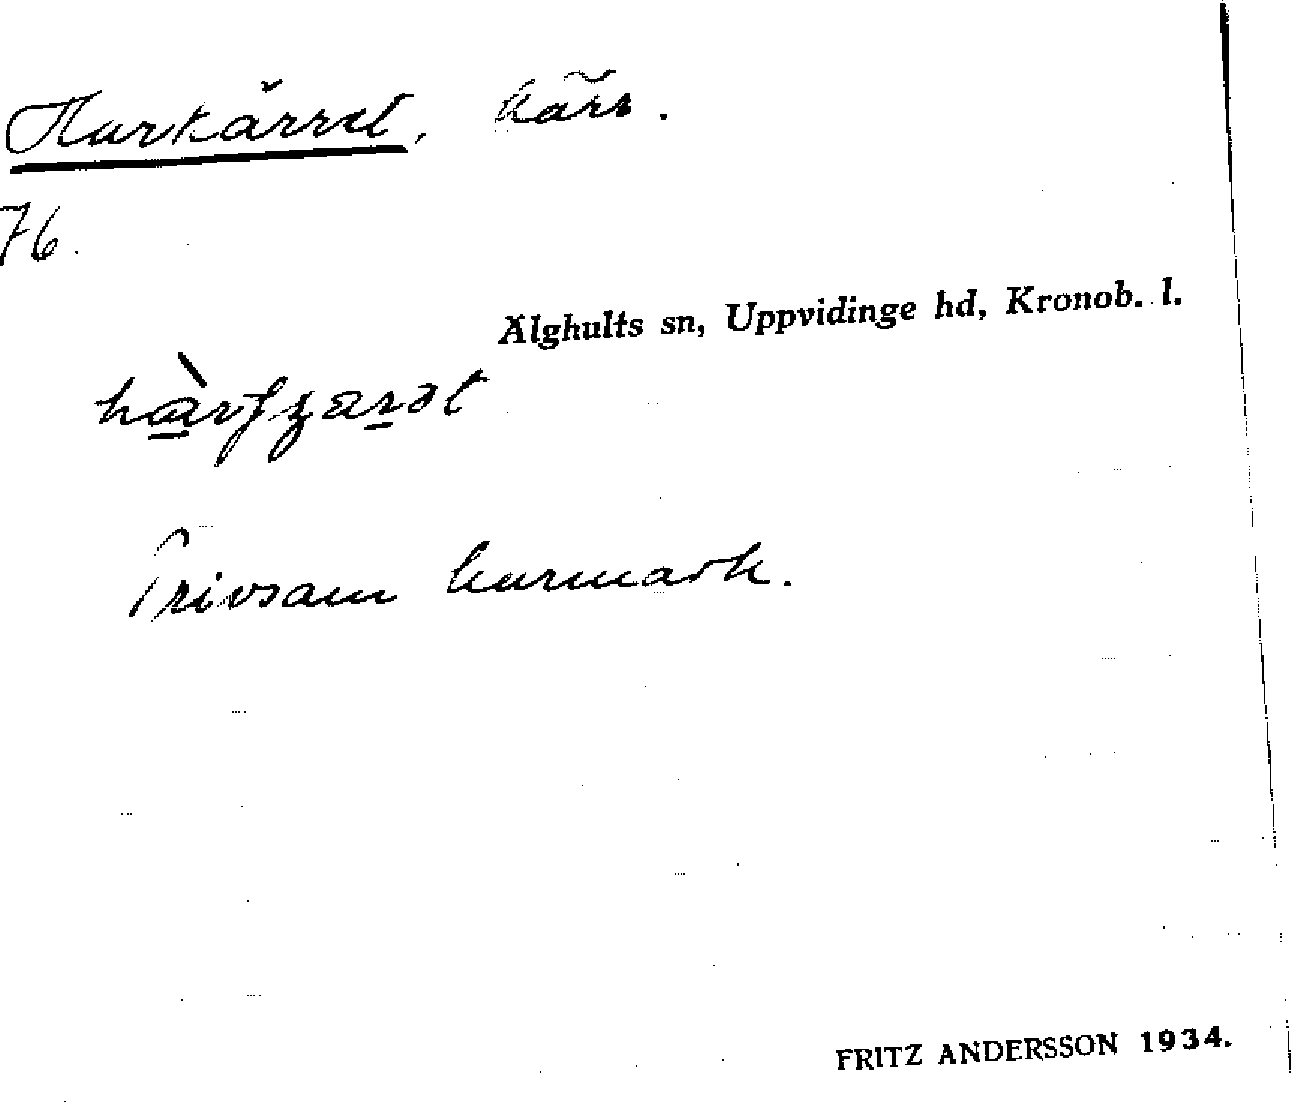 Hurkärret, kärr.
76.
Älghults sn, Uppvidinge hd, Kronob. l.
Trivsam hurmark.
FRITZ ANDERSSON 1934.